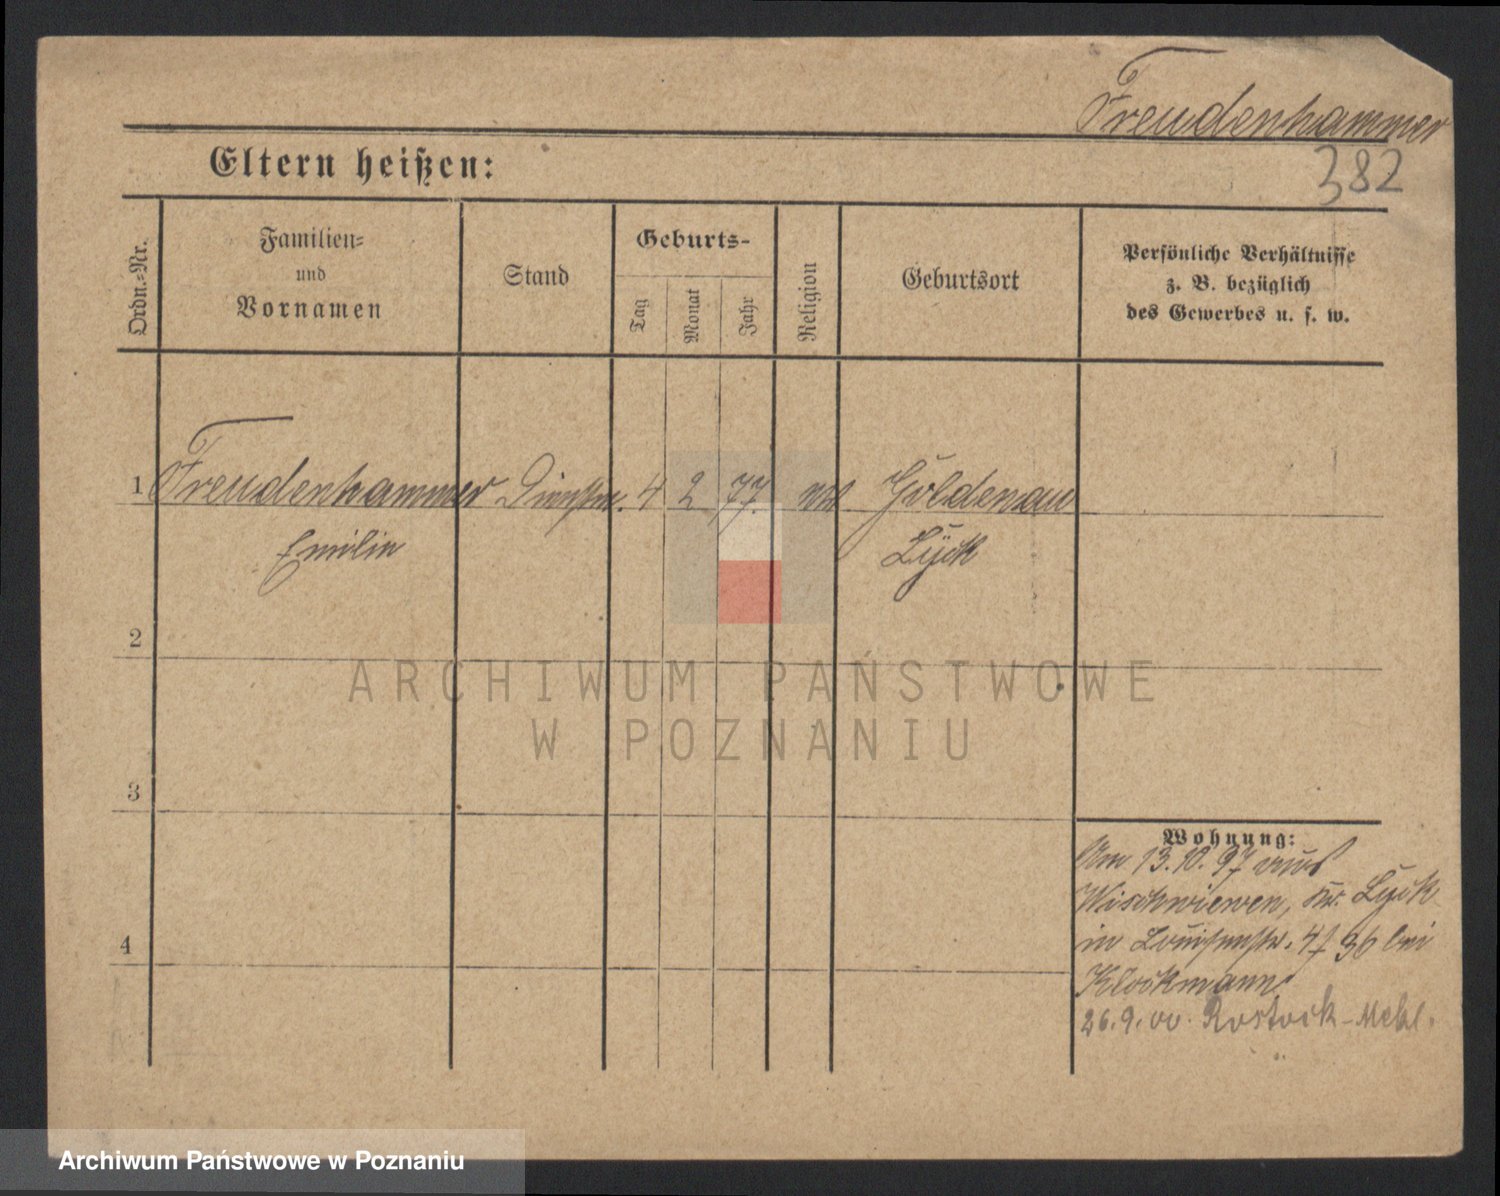 Freudenhammer
382
Eltern heißen:
Ordn.-Nr.
Familien-
und
Vornamen
Stand
Geburts-
Tag
Monat
Jahr
Religion
Geburtsort
Persönliche Verhältnisse
z. B. bezüglich
des Gewerbes u. s. w.
1 Freudenhammer Dienstm. 4 2 77. Goldenau
Emilie Lyck
2
ARCHIWUM PAŃSTWOWE
W POZNANIU
3
Wohnung:
Am 13.10.97 aus
Wischniewen, Kr. Lyck
in Louisenstr. 4 f 36 bei
Klockmann
4
26.9.00. Rostock-Mekl.
Archiwum Państwowe w Poznaniu